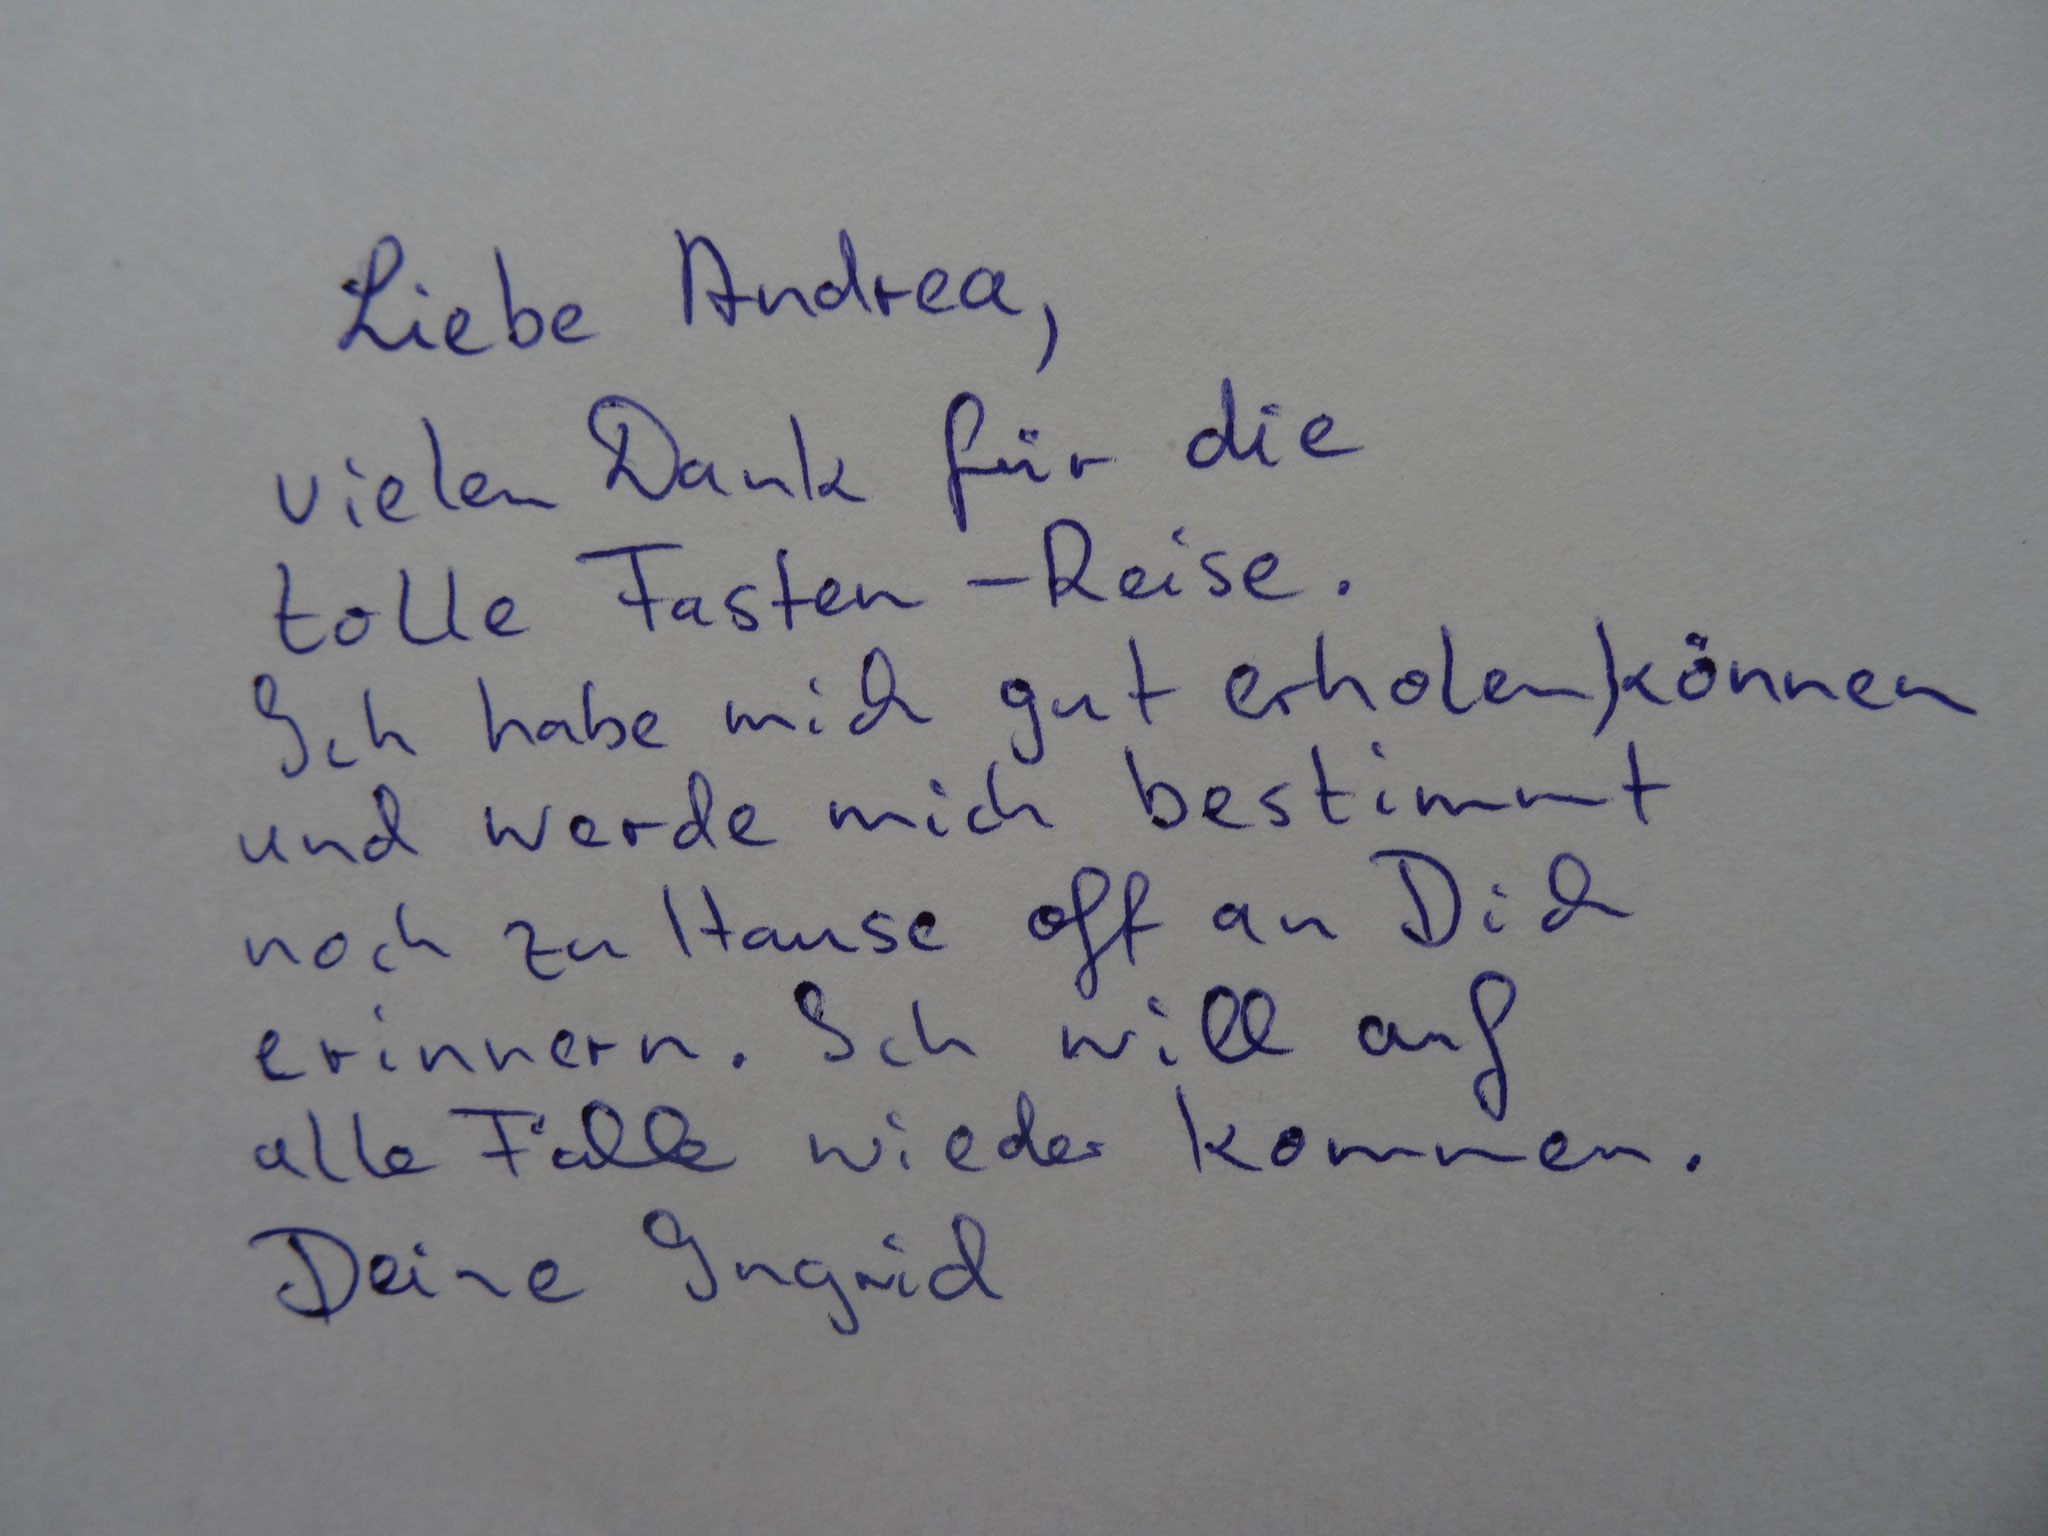 Liebe Andrea,
vielen Dank für die
tolle Fasten-Reise.
Ich habe mich gut erholen)können
und werde mich bestimmt
noch zu Hause oft an Dich
erinnern. Ich will auf
alle Fälle wieder kommen.
Deine Ingrid